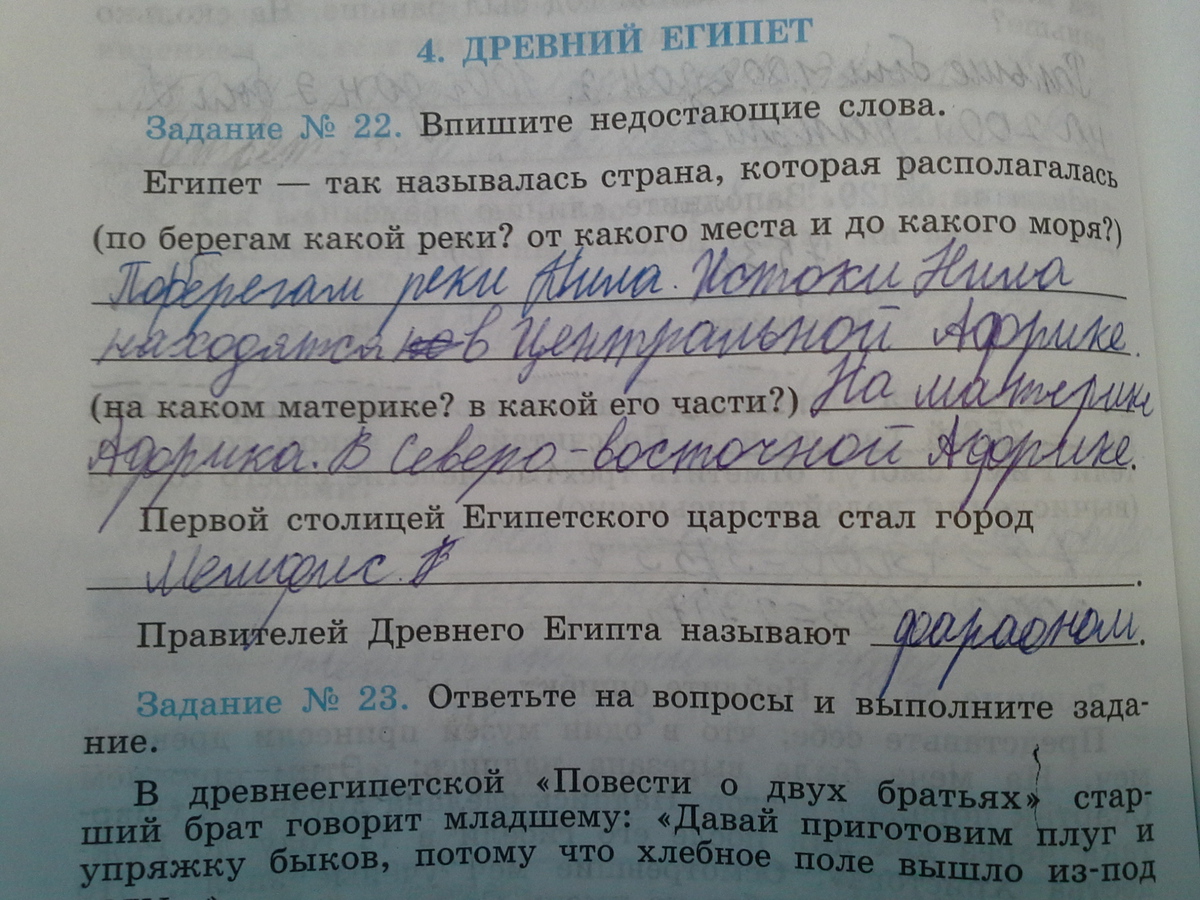 4. ДРЕВНИЙ ЕГИПЕТ
Задание № 22. Впишите недостающие слова.
Египет — так называлась страна, которая располагалась
(по берегам какой реки? от какого места и до какого моря?)
По берегам реки Нила. Истоки Нила
находятся в Центральной Африке.
(на каком материке? в какой его части?) На материке
Африка. В Северо-восточной Африке.
Первой столицей Египетского царства стал город
Мемфис. В
Правителей Древнего Египта называют фараоном.
Задание № 23. Ответьте на вопросы и выполните зада-
ние.
В древнеегипетской «Повести о двух братьях» стар-
ший брат говорит младшему: «Давай приготовим плуг и
упряжку быков, потому что хлебное поле вышло из-под